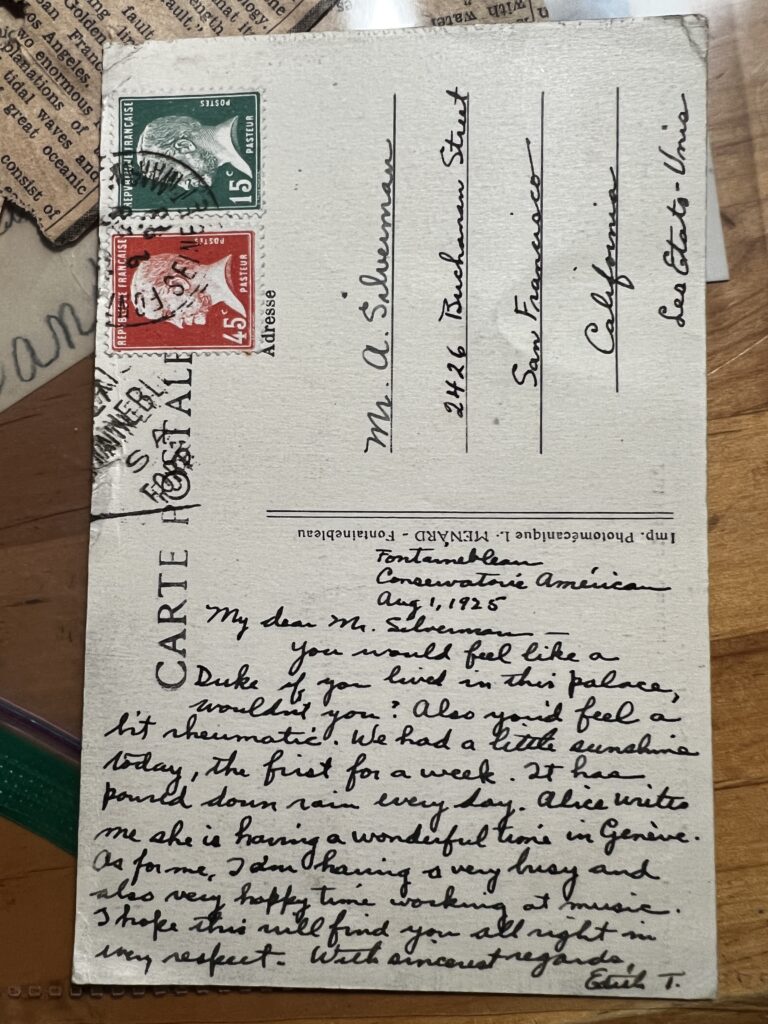 fault
Golden
San Franc
Los Angeles,
two enormous
explanations of
tidal waves and
great oceanic
consist of
with water
REPUBLIQUE FRANÇAISE
POSTES
PASTEUR
15c
REPUBLIQUE FRANÇAISE
POSTES
PASTEUR
45c
CARTE POSTALE
Adresse
Mr. A. Silverman
2426 Buchanan Street
San Francisco
California
Les Etats-Unis
Imp. Photomécanique L. MENARD - Fontainebleau
Fontainebleau
Conservatoire Américan
Aug 1, 1925
My dear Mr. Silverman —
You would feel like a
Duke if you lived in this palace,
wouldn't you? Also you'd feel a
bit rheumatic. We had a little sunshine
today, the first for a week. It has
poured down rain every day. Alice writes
me she is having a wonderful time in Genève.
As for me, I am having a very busy and
also very happy time working at music.
I hope this will find you all right in
every respect. With sincerest regards,
Edith T.